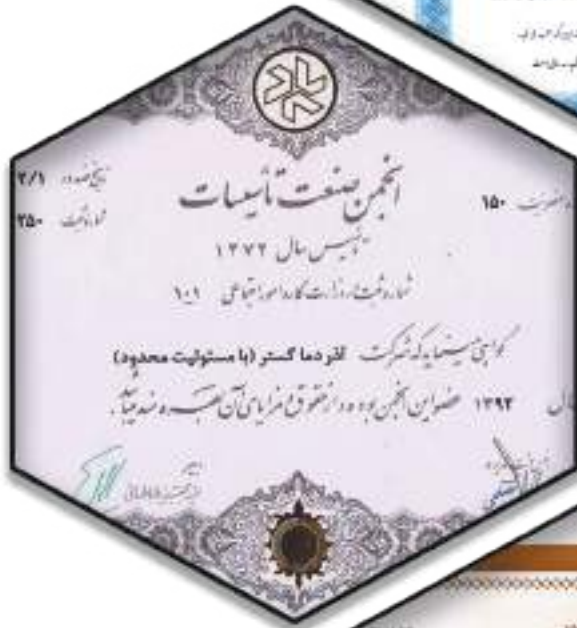 انجمن صنعت تأسیسات
تأسیس سال ۱۳۷۲
شماره ثبت وزارت کار و امور اجتماعی ۱۰۱
تاریخ صدور ۲/۱
شماره ثبت ۲۵۰
عضویت ۱۵۰
گواهی مینماید که شرکت آذر دما گستر (با مسئولیت محدود)
سال ۱۳۹۳ عضو این انجمن بوده و از حقوق و مزایای آن بهره مند میباشد.